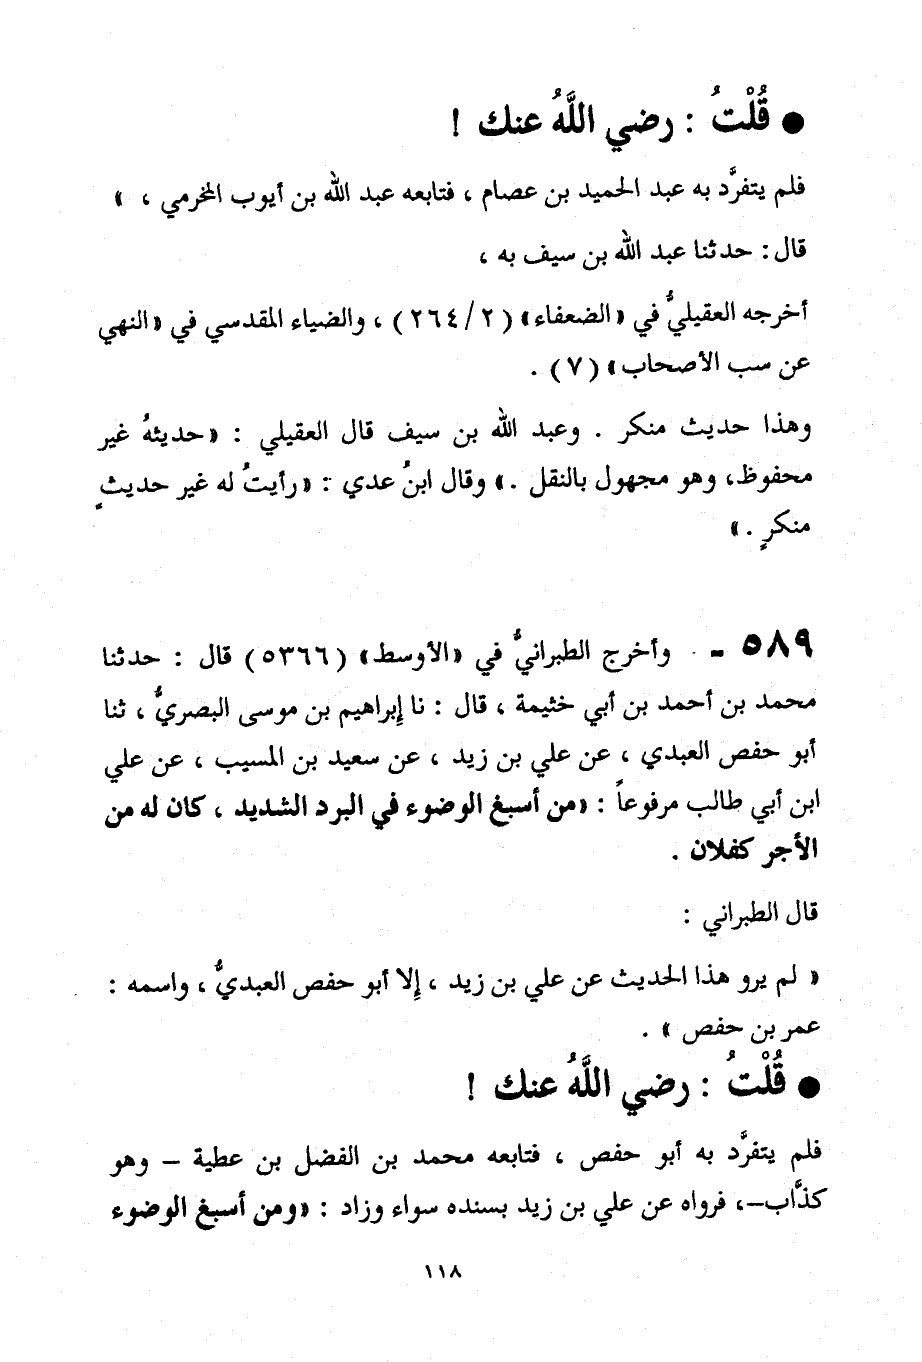 ● قُلْتُ : رضي اللَّهُ عنك !
فلم يتفرَّد به عبد الحميد بن عصام ، فتابعه عبد الله بن أيوب المخرمي ، »
قال : حدثنا عبد الله بن سيف به ،
أخرجه العقيليُّ في «الضعفاء» (٢/ ٢٦٤) ، والضياء المقدسي في «النهي
عن سب الأصحاب» (٧) .
وهذا حديث منكر . وعبد الله بن سيف قال العقيلي : «حديثهُ غير
محفوظ، وهو مجهول بالنقل .» وقال ابنُ عدي : «رأيتُ له غير حديثٍ
منكرٍ .»
٥٨٩ - وأخرج الطبرانيُّ في «الأوسط» (٥٣٦٦) قال : حدثنا
محمد بن أحمد بن أبي خثيمة ، قال : نا إبراهيم بن موسى البصريُّ ، ثنا
أبو حفص العبدي ، عن علي بن زيد ، عن سعيد بن المسيب ، عن علي
ابن أبي طالب مرفوعاً : «من أسبغ الوضوء في البرد الشديد ، كان له من
الأجر كفلان .
قال الطبراني :
« لم يرو هذا الحديث عن علي بن زيد ، إلا أبو حفص العبديُّ ، واسمه :
عمر بن حفص » .
● قُلْتُ : رضي اللَّهُ عنك !
فلم يتفرَّد به أبو حفص ، فتابعه محمد بن الفضل بن عطية – وهو
كذَّاب–، فرواه عن علي بن زيد بسنده سواء وزاد : «ومن أسبغ الوضوء
١١٨